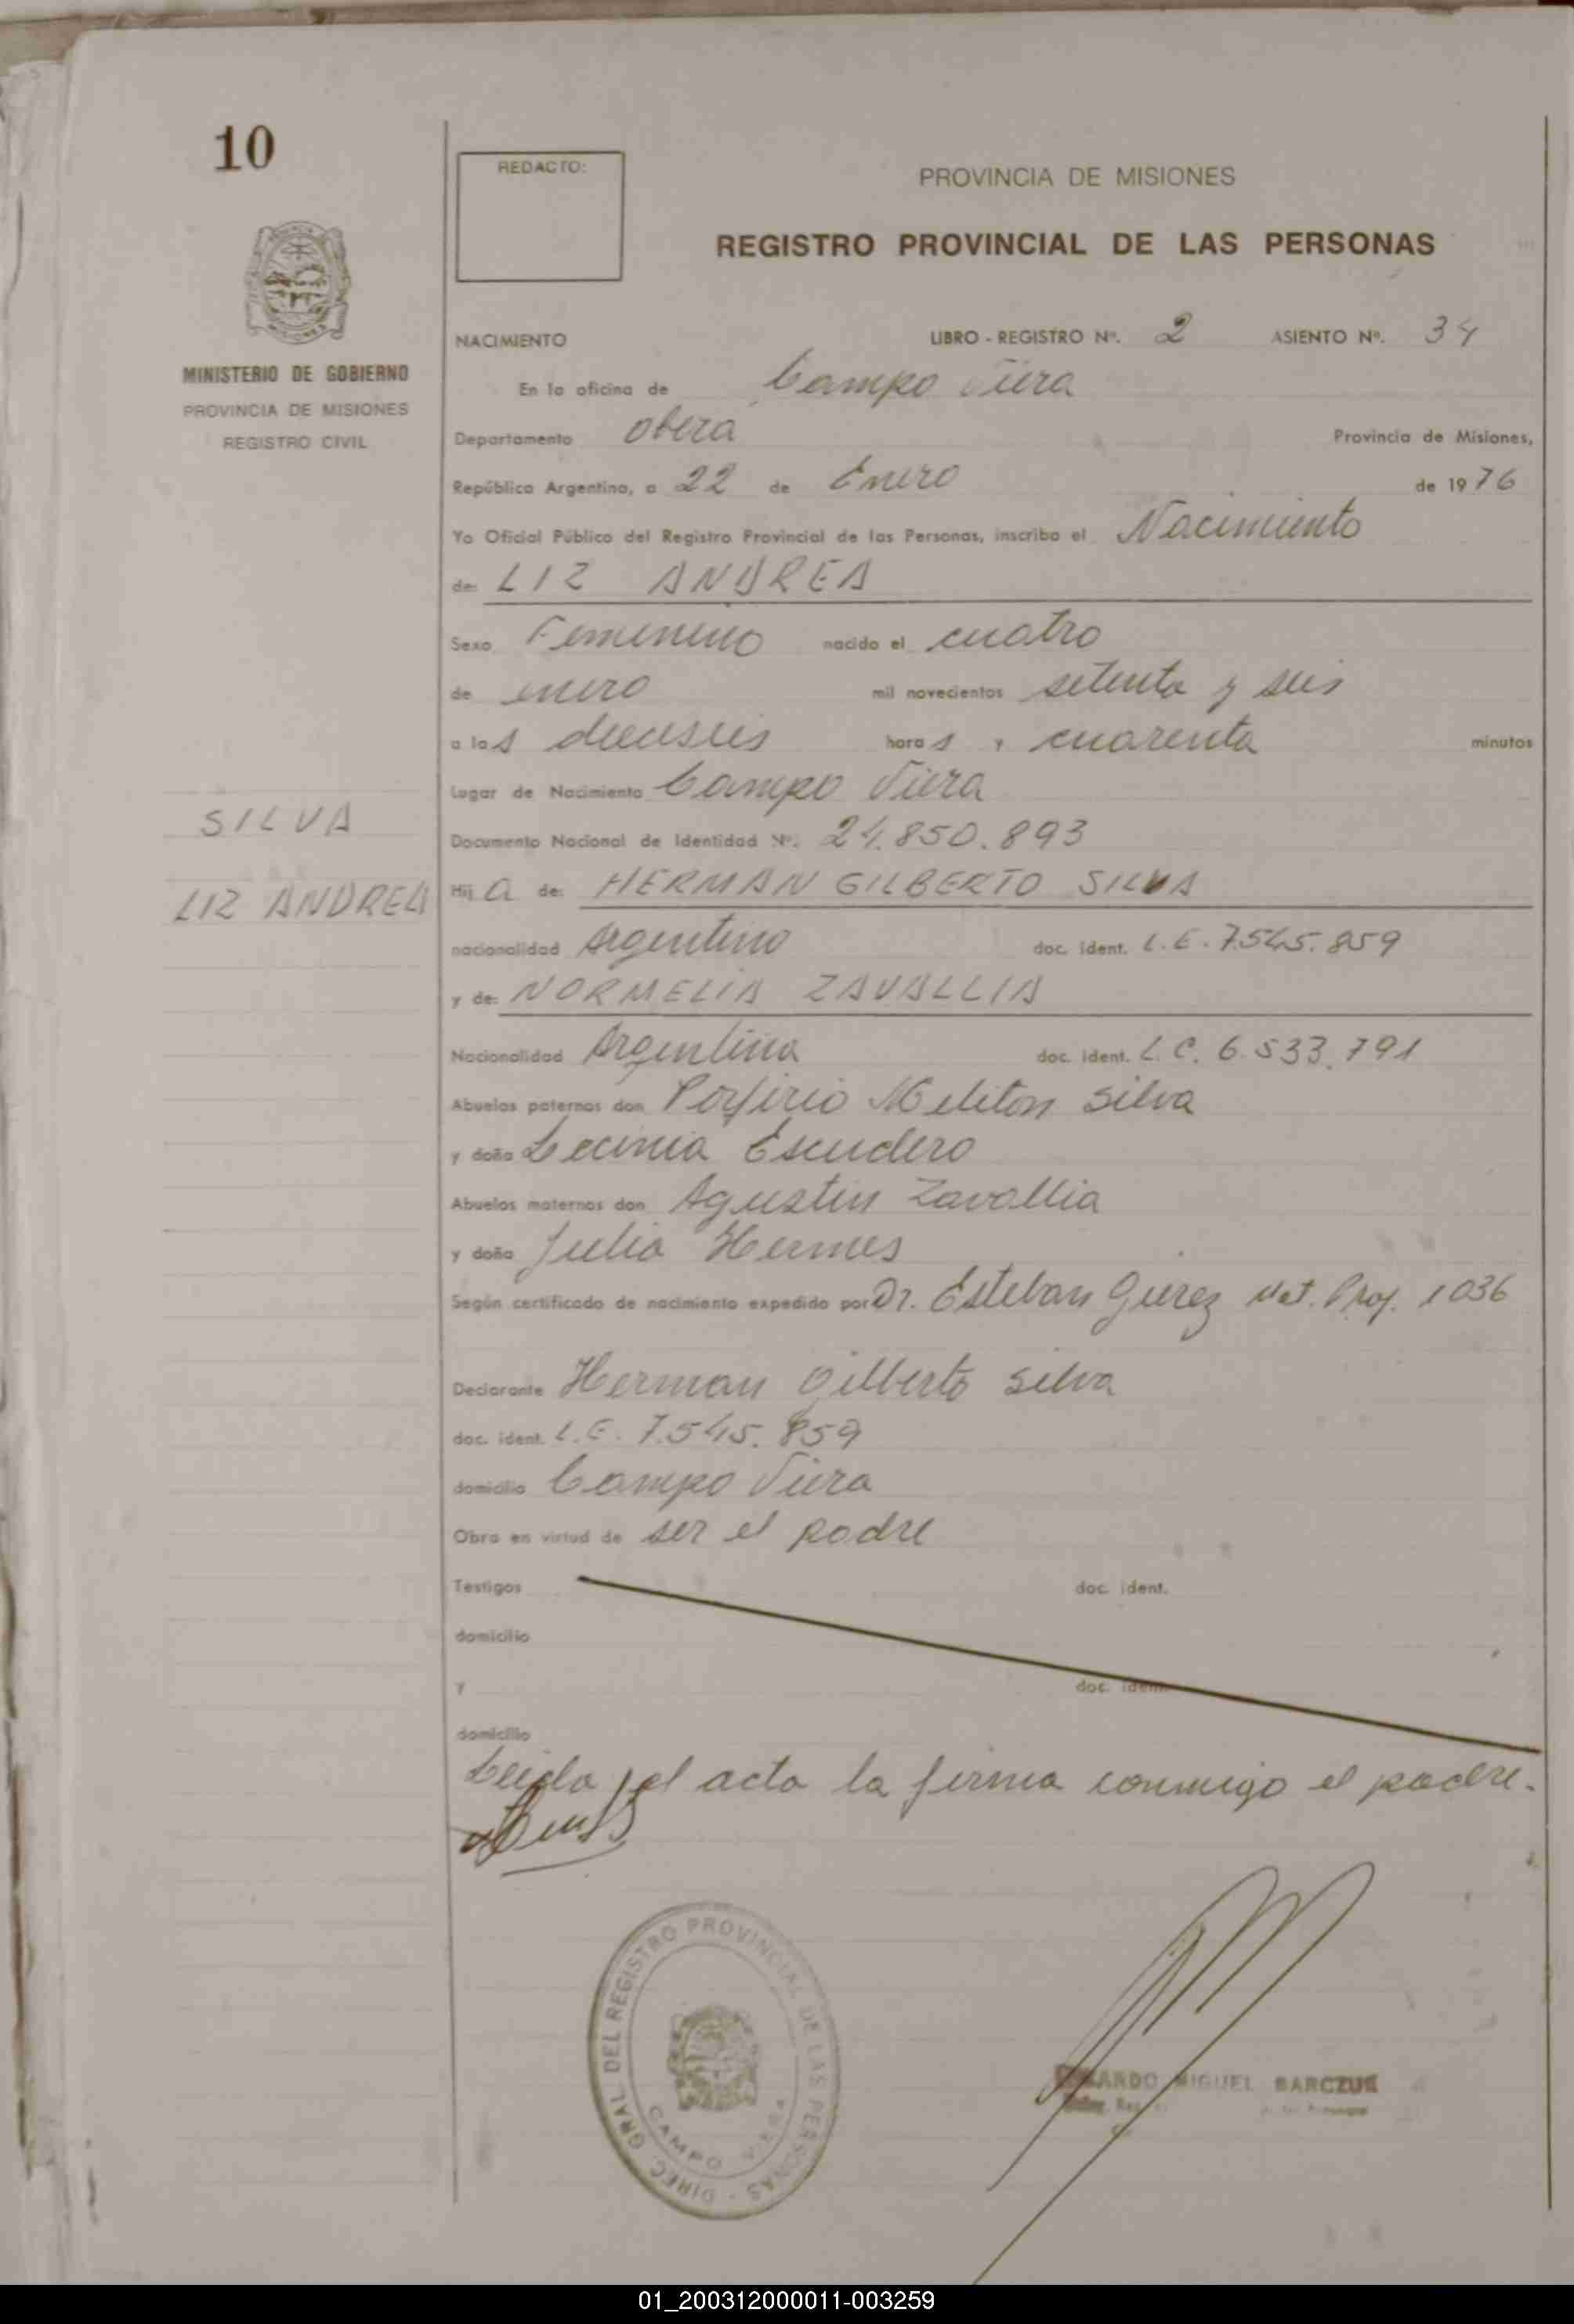 10
REDACTO:
PROVINCIA DE MISIONES
REGISTRO PROVINCIAL DE LAS PERSONAS
MINISTERIO DE GOBIERNO
PROVINCIA DE MISIONES
REGISTRO CIVIL
NACIMIENTO LIBRO - REGISTRO Nº. 2 ASIENTO Nº. 34
En la oficina de Campo Viera
Departamento Obera Provincia de Misiones,
República Argentina, a 22 de Enero de 1976
Yo Oficial Público del Registro Provincial de las Personas, inscribo el Nacimiento
de: LIZ ANDREA
Sexo Femenino nacido el cuatro
de enero mil novecientos setenta y seis
a las dieciseis horas y cuarenta minutos
Lugar de Nacimiento Campo Viera
SILVA
Documento Nacional de Identidad Nº. 24.850.893
LIZ ANDREA
Hija de: HERMAN GILBERTO SILVA
nacionalidad Argentino doc. ident. L.E. 7.545.859
y de: NORMELIA ZAVALLIA
Nacionalidad Argentina doc. ident. L.C. 6.533.791
Abuelos paternos don Porfirio Meliton Silva
y doña Escudero
Abuelos maternos don Agustin Zavallia
y doña Julia
Según certificado de nacimiento expedido por Dr. Esteban Mat. Prof. 1036
Declarante Herman Gilberto Silva
doc. ident. L.E. 7.545.859
domicilio Campo Viera
Obra en virtud de ser el padre
Testigos doc. ident.
domicilio
y doc. ident.
domicilio
Leida el acta la firma conmigo el padre.
DIREC. GRAL. DEL REGISTRO PROVINCIAL DE LAS PERSONAS -
CAMPO VIERA
MIGUEL BARCZUK
01_200312000011-003259